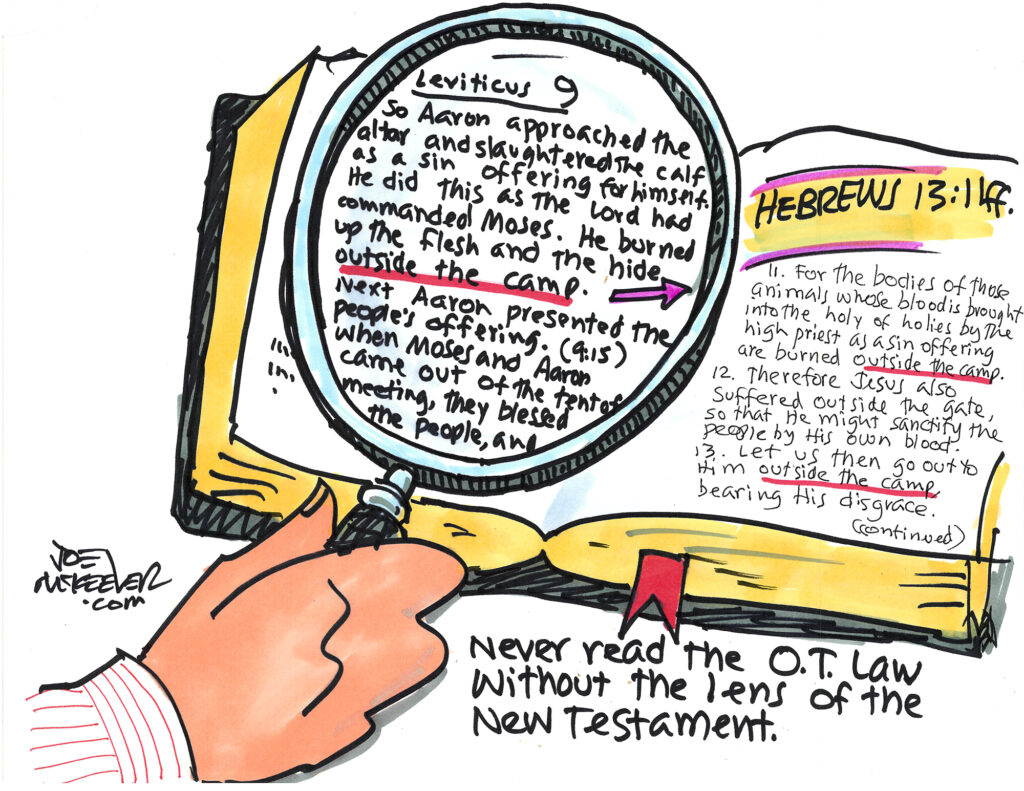 Leviticus 9
So Aaron approached the
altar and slaughtered the calf
as a sin offering for himself.
He did this as the Lord had
commanded Moses. He burned
up the flesh and the hide
outside the camp.
Next Aaron presented the
people's offering. (9:15)
When Moses and Aaron
came out of the tent of
meeting, they blessed
the people, and
HEBREWS 13:11ff.
11. For the bodies of those
animals whose blood is brought
into the holy of holies by the
high priest as a sin offering
are burned outside the camp.
12. Therefore Jesus also
suffered outside the gate,
so that He might sanctify the
people by His own blood.
13. Let us then go out to
Him outside the camp
bearing His disgrace.
(continued)
JOE
MCKEEVER
.com
Never read the O.T. Law
without the lens of the
New Testament.